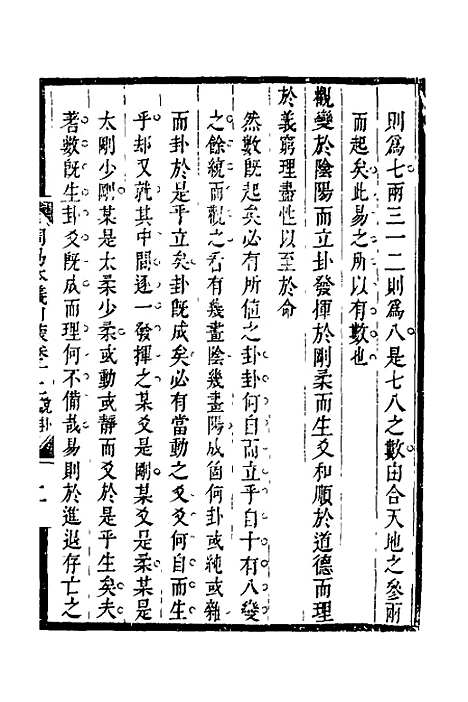 則為七兩三一二則為八是七八之數由合天地之參兩
而起矣此易之所以有數也
觀變於陰陽而立卦發揮於剛柔而生爻和順於道德而理
於義窮理盡性以至於命
然數既起矣必有所值之卦卦何自而立乎自十有八變
之餘統而觀之看有幾畫陰幾畫陽成箇何卦或純或雜
而卦於是乎立矣卦既成矣必有當動之爻爻何自而生
乎却又就其中間逐一發揮之某爻是剛某爻是柔某是
太剛少剛某是太柔少柔或動或靜而爻於是乎生矣夫
蓍數既生卦爻既成而理何不備哉易則於進退存亡之